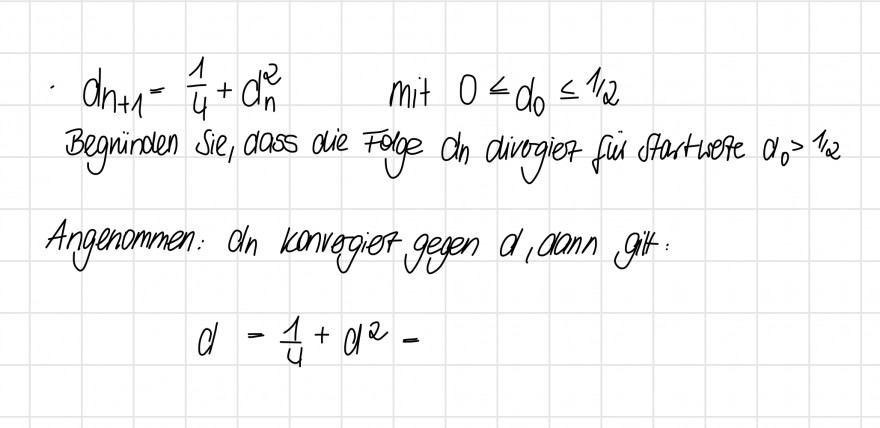 · dn+1 = 1/4 + dn² mit 0 ≤ d0 ≤ 1/2
Begründen Sie, dass die Folge dn divergiert für Startwerte d0 > 1/2
Angenommen: dn konvergiert gegen d, dann gilt:
d = 1/4 + d² -